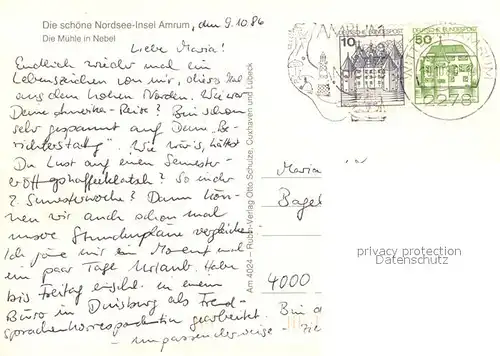 Die schöne Nordsee-Insel Amrum, den 9.10.86
Die Mühle in Nebel
Liebe Maria!
Endlich wieder mal ein
Lebenszeichen von mir, dieses Mal
aus dem hohen Norden. Wie war
Deine Amerika-Reise? Bin schon
sehr gespannt auf Deine „Be-
richterstattg". Wie wär's, hättst
Du Lust auf einen Semester-
eröffgshaffeeklatsch? So in der
2. Semesterwoche? Dann kön-
nen wir auch schon mal
unsere Stundenpläne vergleichen
Ich gönne mir im Moment noch
ein paar Tage Urlaub. Habe
bis Freitag erschl. in einem
Büro in Duisburg als Fremd-
sprachenkorrespondentin gearbeitet.
- unpassenderweise -
Am 4024 – Rubin-Verlag Otto Schulze, Cuxhaven und Lübeck
AMRUM
10
BUNDESPOST
50
DEUTSCHE BUNDESPOST
2278
Maria
Bagel
4000
Bin
privacy protection
Datenschutz